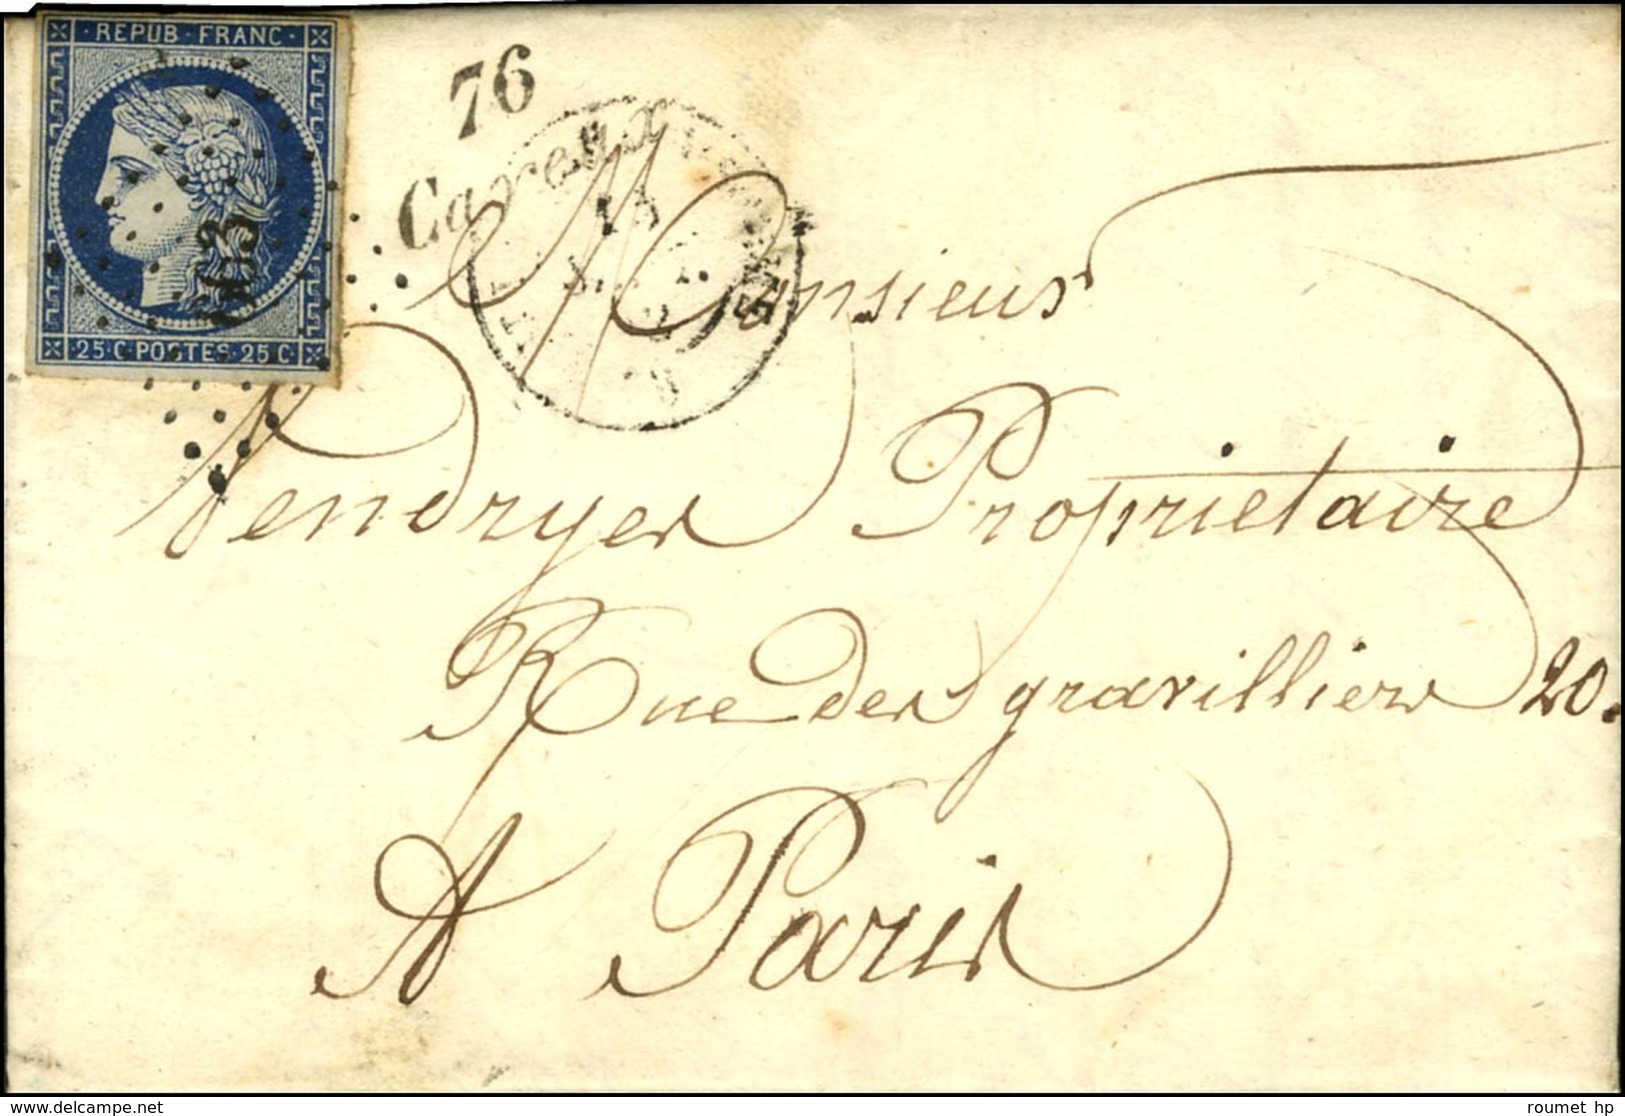 REPUB·FRANC·
25·C·POSTES·25·C
76
Cayeux
Monsieur
Vendryes Propriétaire
Rue des gravilliers 20.
A Paris
delcampe.net
roumet hp